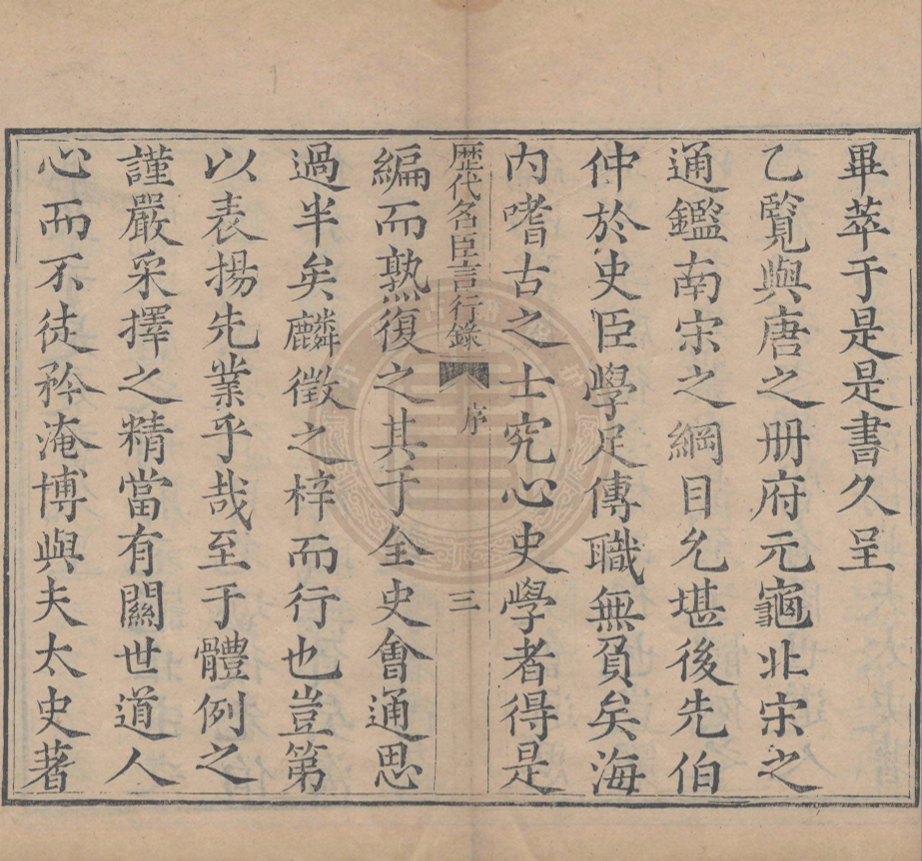 畢萃于是是書久呈
乙覽與唐之册府元龜北宋之
通鑑南宋之綱目允堪後先伯
仲於史臣學足傳職無負矣海
內嗜古之士究心史學者得是
歷代名臣言行錄 序 三
編而熟復之其于全史會通思
過半矣麟徵之梓而行也豈第
以表揚先業乎哉至于體例之
謹嚴采擇之精當有關世道人
心而不徒矜淹博與夫太史著